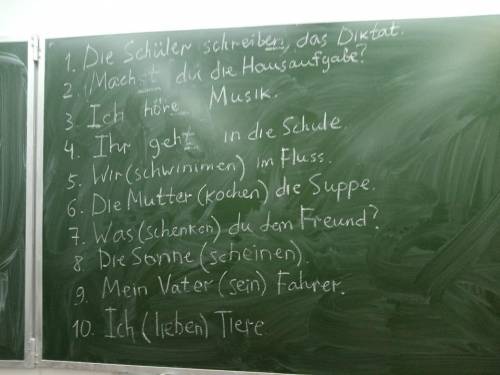 1. Die Schüler schreiben das Diktat.
2. Machst du die Hausaufgabe?
3. Ich höre Musik.
4. Ihr geht in die Schule.
5. Wir (schwimmen) im Fluss.
6. Die Mutter (kochen) die Suppe.
7. Was (schenken) du dem Freund?
8. Die Sonne (scheinen).
9. Mein Vater (sein) Fahrer.
10. Ich (lieben) Tiere